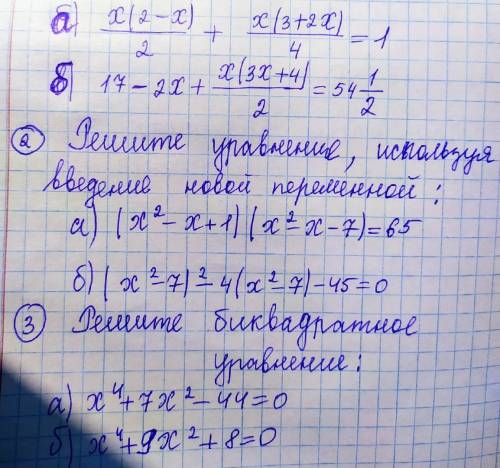 а) x(2-x)/2 + x(3+2x)/4 = 1
б) 17-2x+ x(3x+4)/2 = 54 1/2
② Решите уравнение, используя
введение новой переменной:
а) (x²-x+1)(x²-x-7)=65
б) (x²-7)²-4(x²-7)-45=0
③ Решите биквадратное
уравнение:
а) x⁴+7x²-44=0
б) x⁴+9x²+8=0